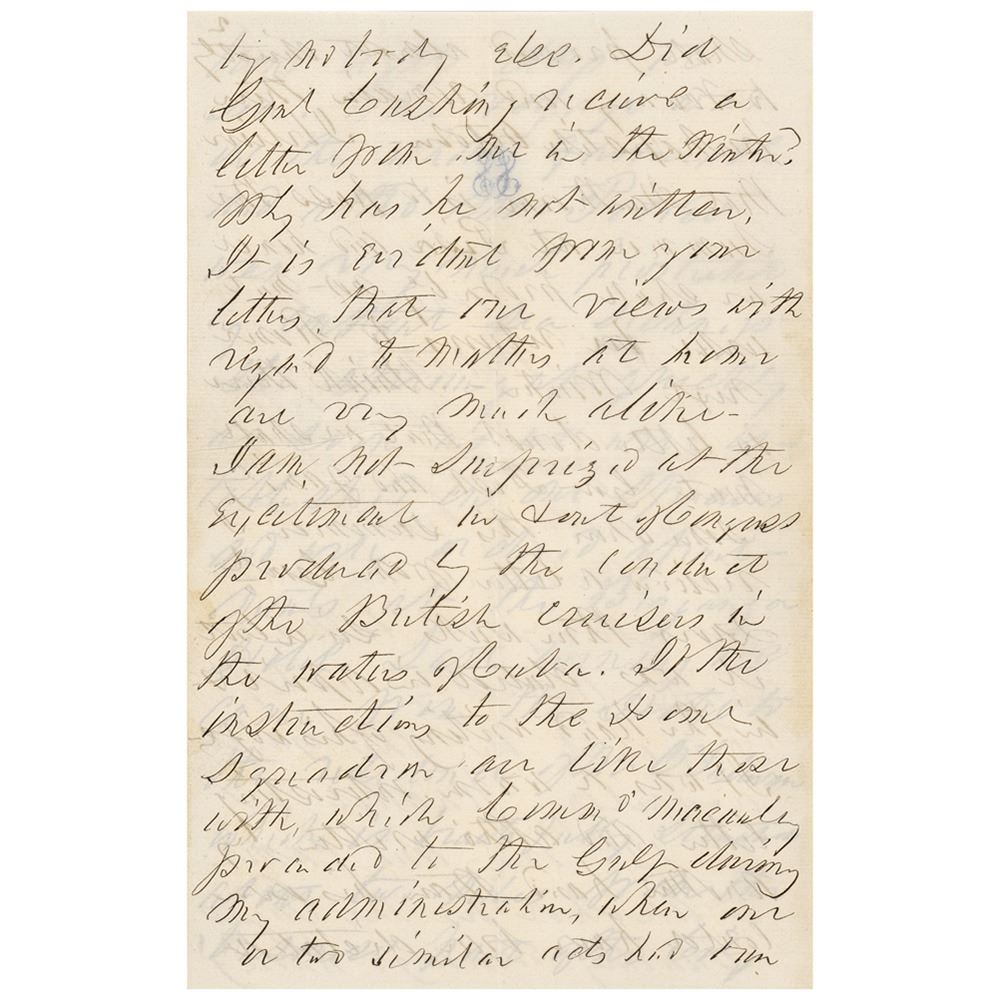 by nobody else. Did
Genl Cushing receive a
letter from me in the Winter?
Why has he not written.
It is evident from your
letters, that our views with
regard to matters at home
are very much alike -
I am not surprized at the
excitement in & out of Congress
produced by the conduct
of the British cruisers in
the waters of Cuba. If the
instructions to the Home
Squadron are like those
with, which Commo Macauley
proceeded to the Gulf during
my administration, when one
or two similar acts had been